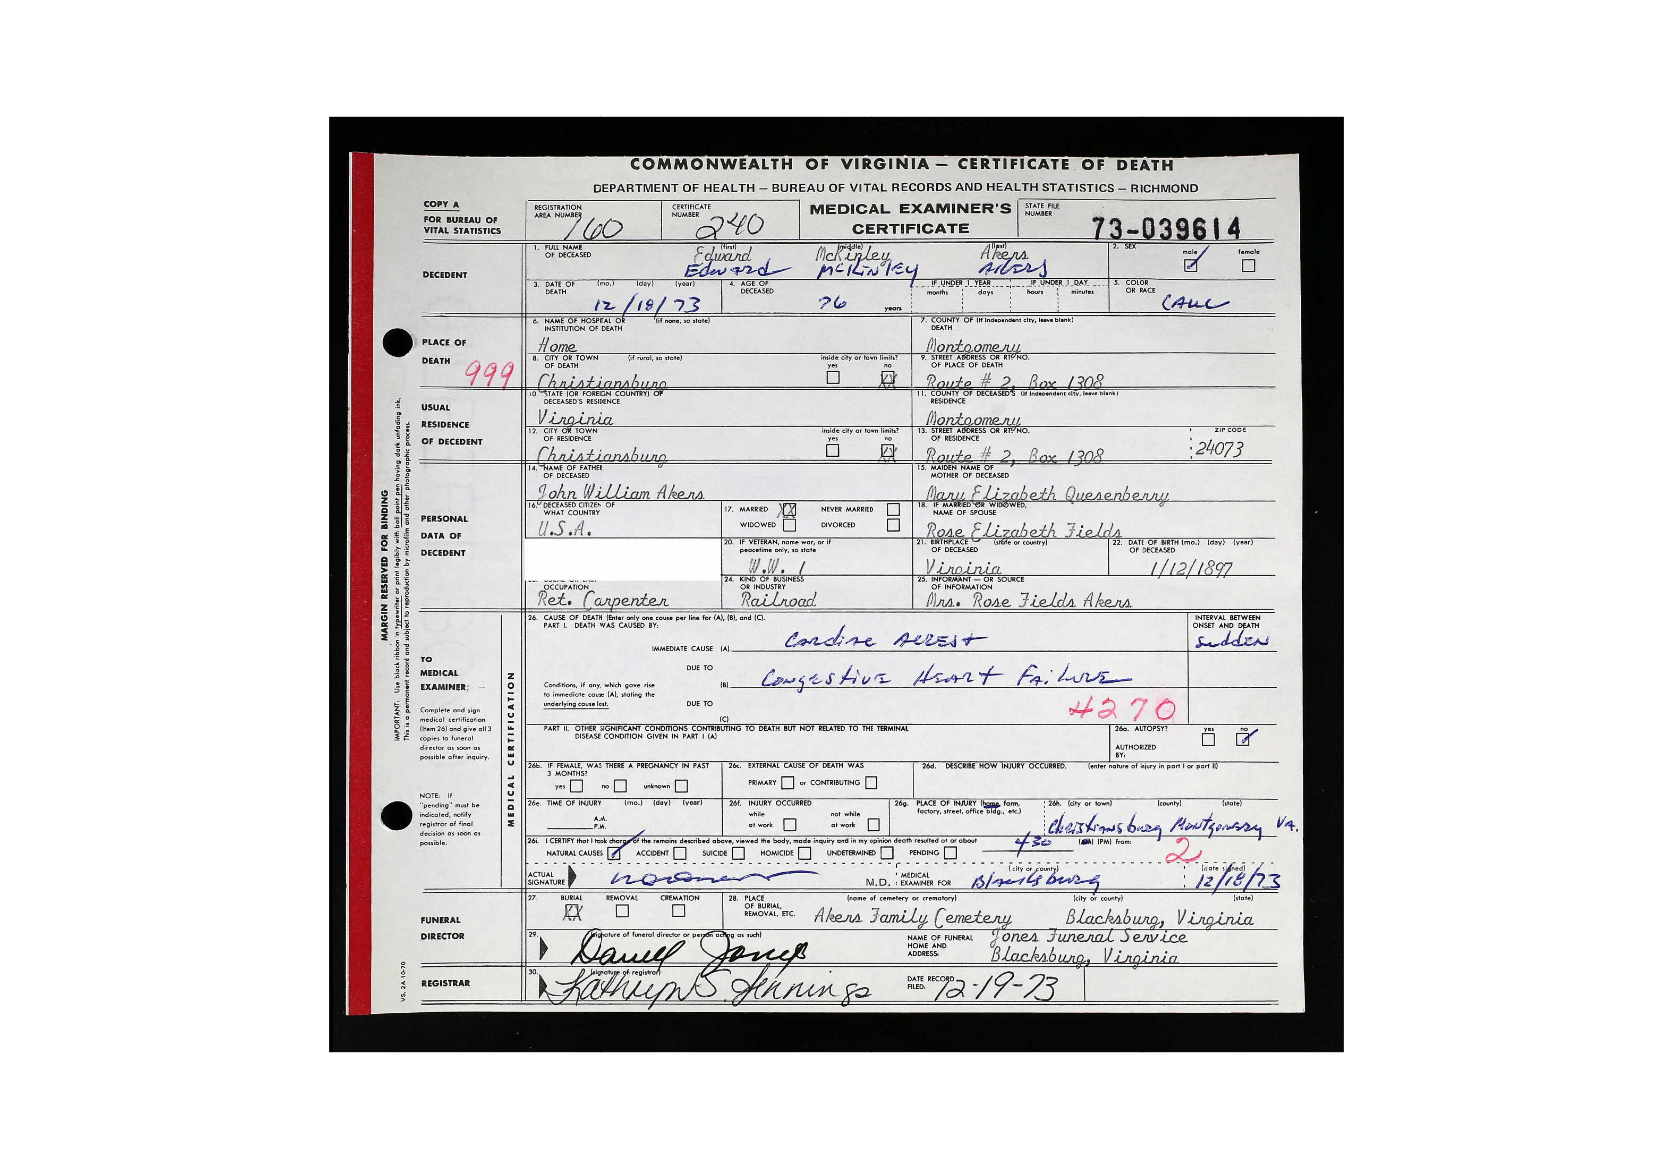 COMMONWEALTH OF VIRGINIA — CERTIFICATE OF DEATH
DEPARTMENT OF HEALTH — BUREAU OF VITAL RECORDS AND HEALTH STATISTICS — RICHMOND
COPY A
FOR BUREAU OF
VITAL STATISTICS
REGISTRATION
AREA NUMBER 160
CERTIFICATE
NUMBER 240
MEDICAL EXAMINER'S
CERTIFICATE
STATE FILE
NUMBER
73-039614
DECEDENT
1. FULL NAME (first) (middle) (last)
OF DECEASED
Edward McKinley Akers
Edward McKinley Akers
2. SEX
male female
3. DATE OF (mo.) (day) (year)
DEATH
12/18/73
4. AGE OF
DECEASED
76 years
IF UNDER 1 YEAR IF UNDER 1 DAY
months days hours minutes
5. COLOR
OR RACE
CAUC
PLACE OF
DEATH
999
6. NAME OF HOSPITAL OR (if none, so state)
INSTITUTION OF DEATH
Home
7. COUNTY OF (if independent city, leave blank)
DEATH
Montgomery
8. CITY OR TOWN (if rural, so state) inside city or town limits?
OF DEATH yes no
Christiansburg XX
9. STREET ADDRESS OR RT. NO.
OF PLACE OF DEATH
Route # 2, Box 1308
USUAL
RESIDENCE
OF DECEDENT
10. STATE (OR FOREIGN COUNTRY) OF
DECEASED'S RESIDENCE
Virginia
11. COUNTY OF DECEASED'S (if independent city, leave blank)
RESIDENCE
Montgomery
12. CITY OR TOWN inside city or town limits?
OF RESIDENCE yes no
Christiansburg XX
13. STREET ADDRESS OR RT. NO. ZIP CODE
OF RESIDENCE
Route # 2, Box 1308 24073
PERSONAL
DATA OF
DECEDENT
14. NAME OF FATHER
OF DECEASED
John William Akers
15. MAIDEN NAME OF
MOTHER OF DECEASED
Mary Elizabeth Quesenberry
16. DECEASED CITIZEN OF
WHAT COUNTRY
U.S.A.
17. MARRIED XX NEVER MARRIED
WIDOWED DIVORCED
18. IF MARRIED OR WIDOWED,
NAME OF SPOUSE
Rose Elizabeth Fields
20. IF VETERAN, name war, or if
peacetime only, so state
W.W. 1
21. BIRTHPLACE (state or country)
OF DECEASED
Virginia
22. DATE OF BIRTH (mo.) (day) (year)
OF DECEASED
1/12/1897
OCCUPATION
Ret. Carpenter
24. KIND OF BUSINESS
OR INDUSTRY
Railroad
25. INFORMANT — OR SOURCE
OF INFORMATION
Mrs. Rose Fields Akers
MARGIN RESERVED FOR BINDING
IMPORTANT: Use black ribbon in typewriter or print legibly with ball point pen having dark unfading ink.
This is a permanent record and subject to reproduction by microfilm and other photographic process.
TO
MEDICAL
EXAMINER:
Complete and sign
medical certification
(Item 26) and give all 3
copies to funeral
director as soon as
possible after inquiry.
NOTE: If
"pending" must be
indicated, notify
registrar of final
decision as soon as
possible.
MEDICAL CERTIFICATION
26. CAUSE OF DEATH (Enter only one cause per line for (A), (B), and (C).
PART I. DEATH WAS CAUSED BY:
INTERVAL BETWEEN
ONSET AND DEATH
IMMEDIATE CAUSE (A) Cardiac Arrest sudden
DUE TO
(B) Congestive Heart Failure
Conditions, if any, which gave rise
to immediate cause (A), stating the
underlying cause last.
DUE TO
(C)
4270
PART II. OTHER SIGNIFICANT CONDITIONS CONTRIBUTING TO DEATH BUT NOT RELATED TO THE TERMINAL
DISEASE CONDITION GIVEN IN PART I (A)
26a. AUTOPSY? yes no
AUTHORIZED
BY:
26b. IF FEMALE, WAS THERE A PREGNANCY IN PAST
3 MONTHS?
yes no unknown
26c. EXTERNAL CAUSE OF DEATH WAS
PRIMARY or CONTRIBUTING
26d. DESCRIBE HOW INJURY OCCURRED. (enter nature of injury in part I or part II)
26e. TIME OF INJURY (mo.) (day) (year)
A.M.
P.M.
26f. INJURY OCCURRED
while not while
at work at work
26g. PLACE OF INJURY (home, farm,
factory, street, office bldg., etc.)
26h. (city or town) (county) (state)
Christiansburg Montgomery VA.
26i. I CERTIFY that I took charge of the remains described above, viewed the body, made inquiry and in my opinion death resulted at or about 430 (PM) from:
NATURAL CAUSES ACCIDENT SUICIDE HOMICIDE UNDETERMINED PENDING
2
ACTUAL
SIGNATURE
M.D. : MEDICAL
EXAMINER FOR
(city or county)
Blacksburg
(date signed)
12/18/73
FUNERAL
DIRECTOR
27. BURIAL REMOVAL CREMATION
XX
28. PLACE (name of cemetery or crematory) (city or county) (state)
OF BURIAL,
REMOVAL, ETC.
Akers Family Cemetery Blacksburg, Virginia
29. (signature of funeral director or person acting as such)
Jones
NAME OF FUNERAL
HOME AND
ADDRESS:
Jones Funeral Service
Blacksburg, Virginia
REGISTRAR
30. (signature of registrar)
Kathryn S. Jennings
DATE RECORD
FILED:
12-19-73
VS. 2A 10-70